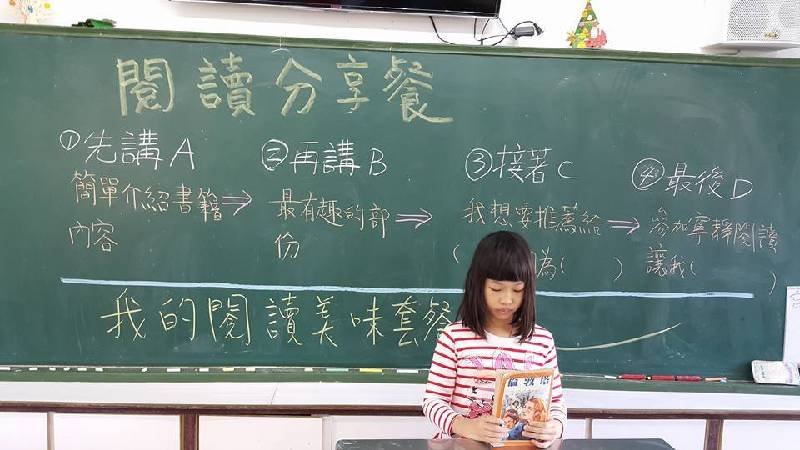 閱讀分享餐
①先講A
簡單介紹書籍⇒
內容
②再講B
最有趣的部⇒
份
③接著C
我想要推薦給⇒
( 為( )
④最後D
參加寧靜閱讀
讓我( )
我的閱讀美味套餐